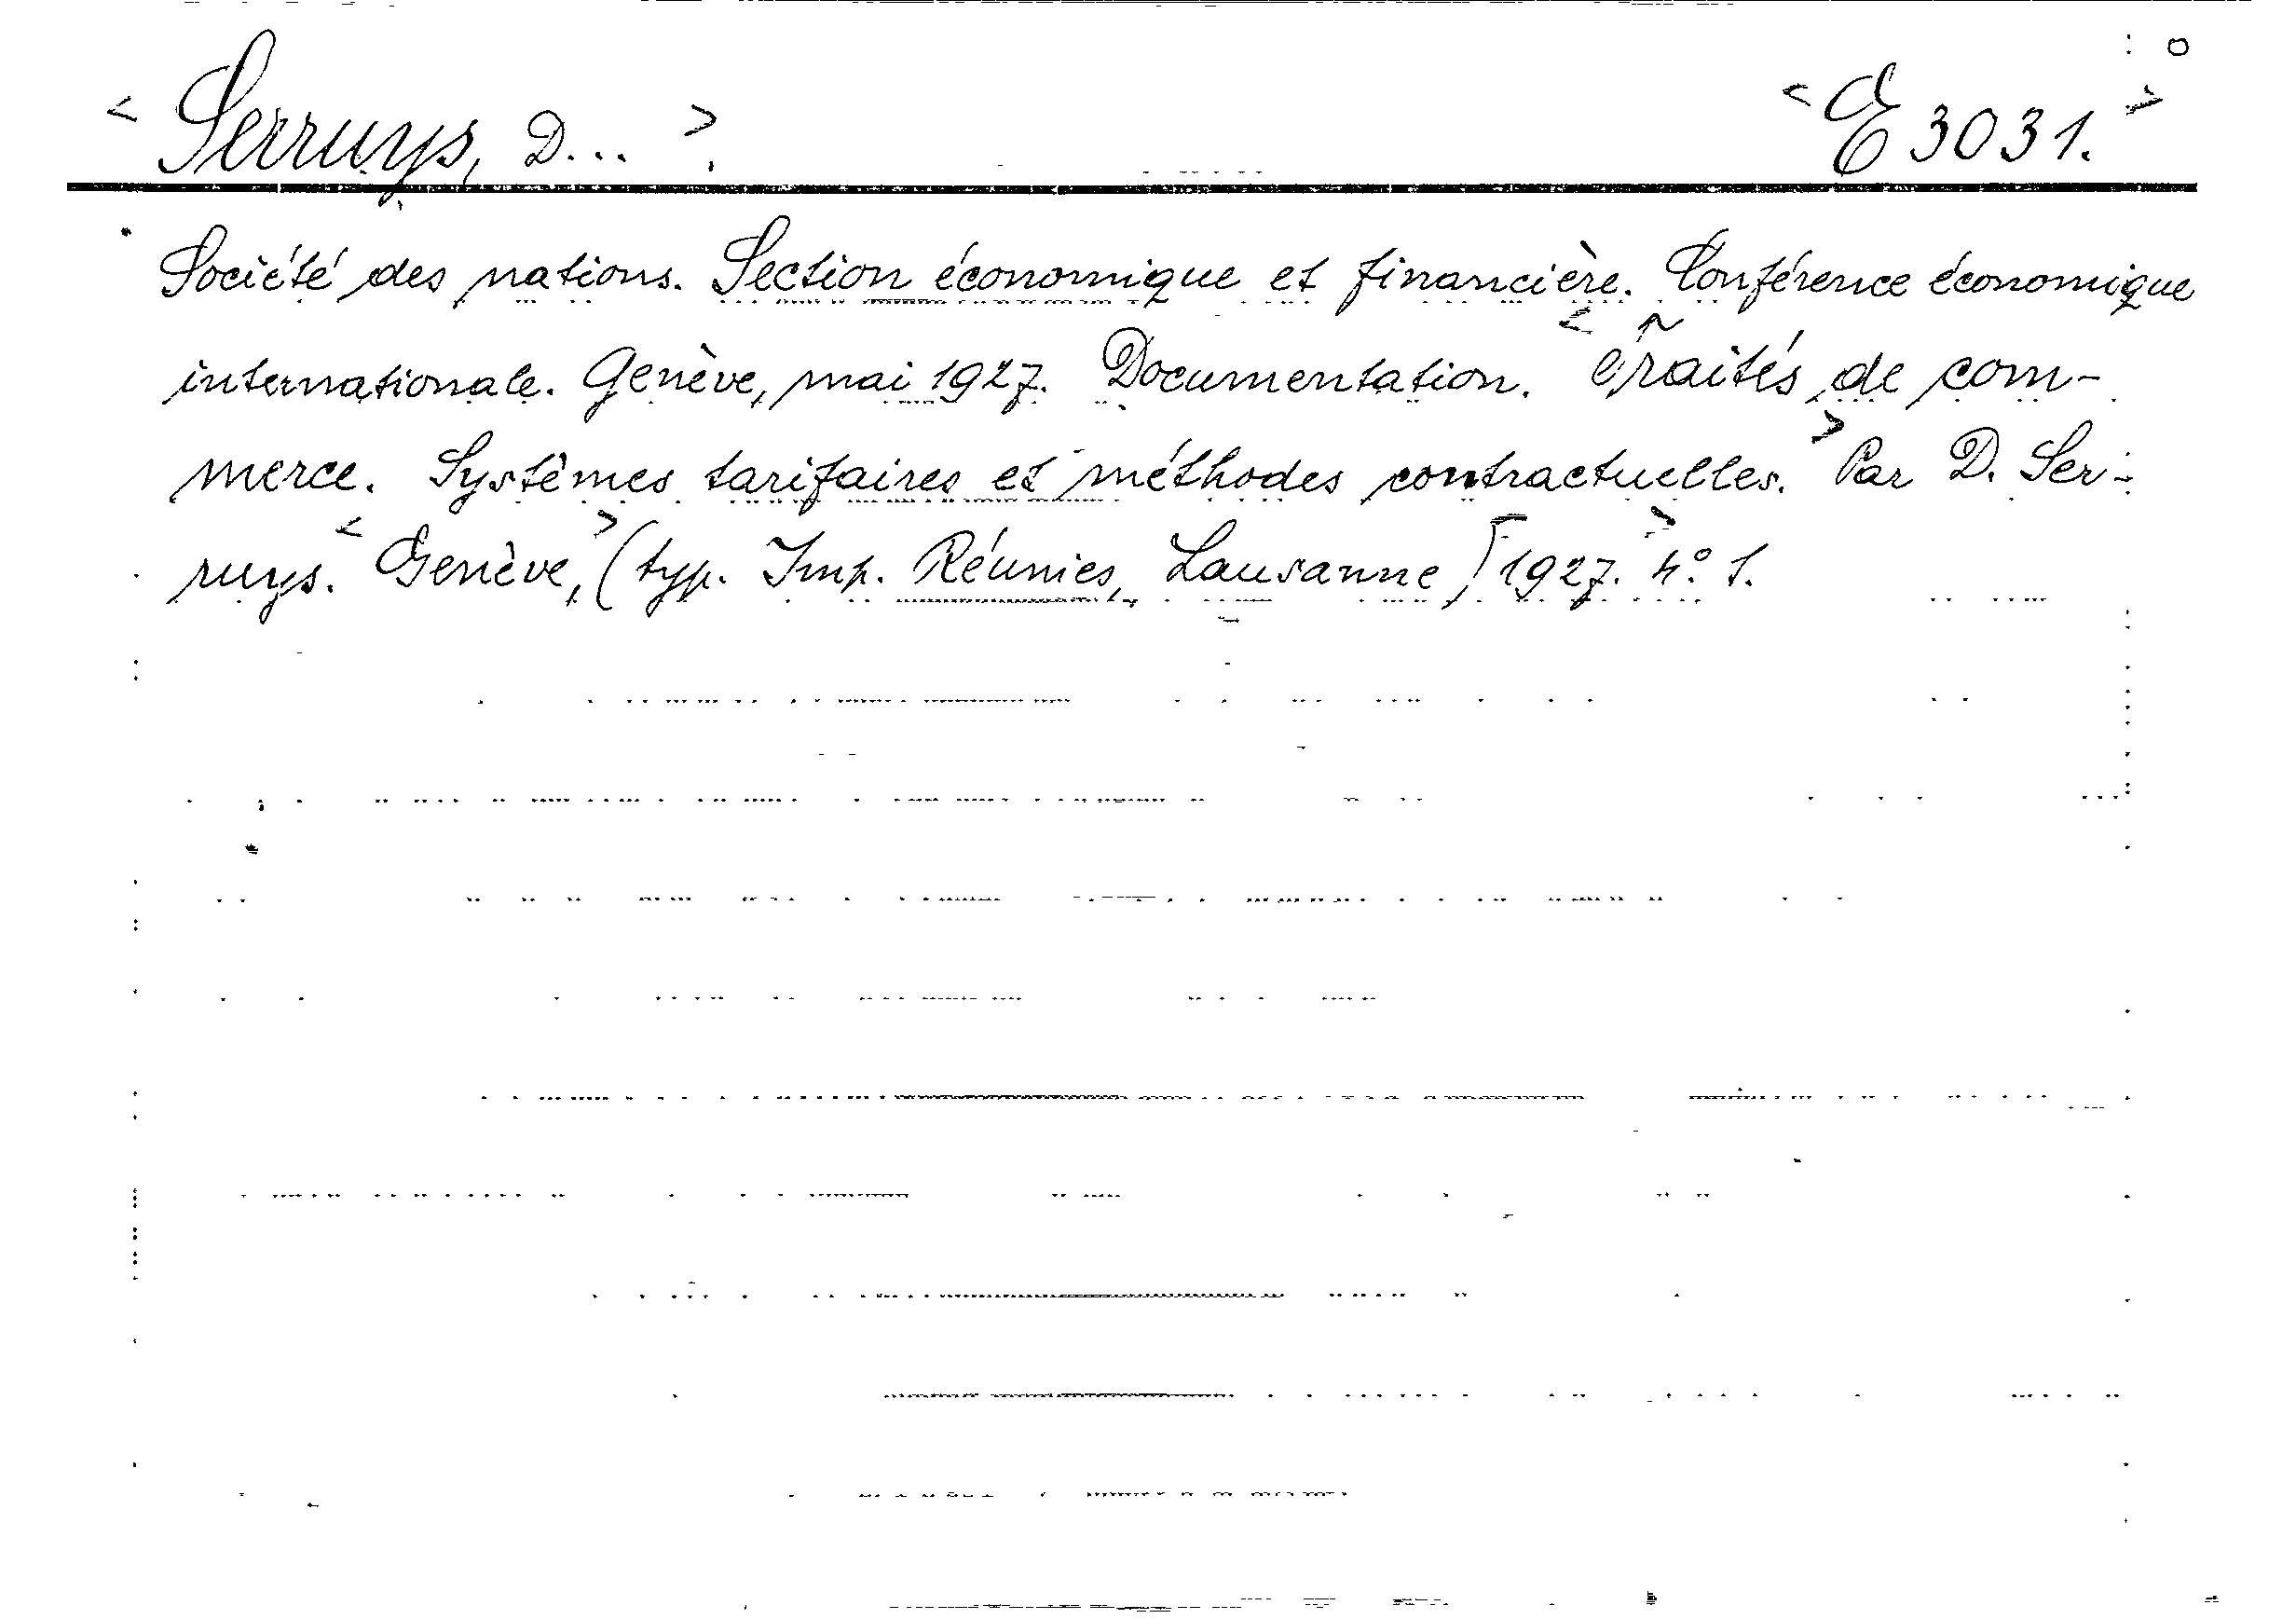 < Serruys, D... >. < E 3031. >
Société des nations. Section économique et financière. Conférence économique
internationale. Genève, mai 1927. Documentation. < Traités de com-
merce. Systèmes tarifaires et méthodes contractuelles. > Par D. Ser-
ruys. < Genève, > (typ. Imp. Réunies, Lausanne) 1927. > 4° 1.